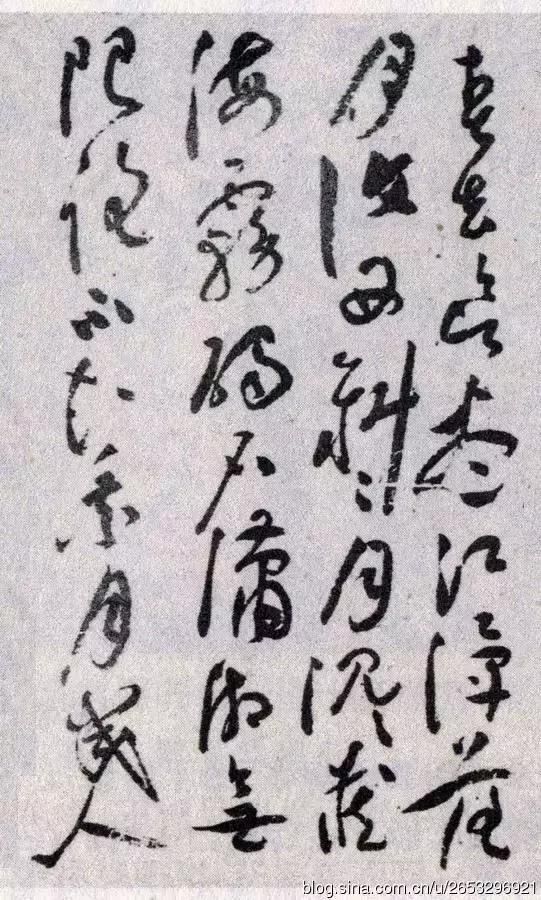 春去欲盡江潭落
月復西斜〻月沉〻藏
海霧碣石瀟湘無
限路不知乘月幾人
blog.sina.com.cn/u/2653296921